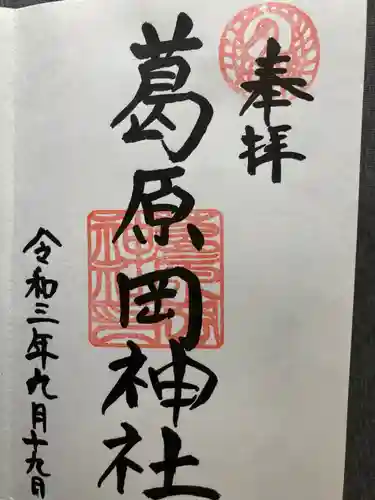 奉拝
葛原岡神社
令和三年九月十九日